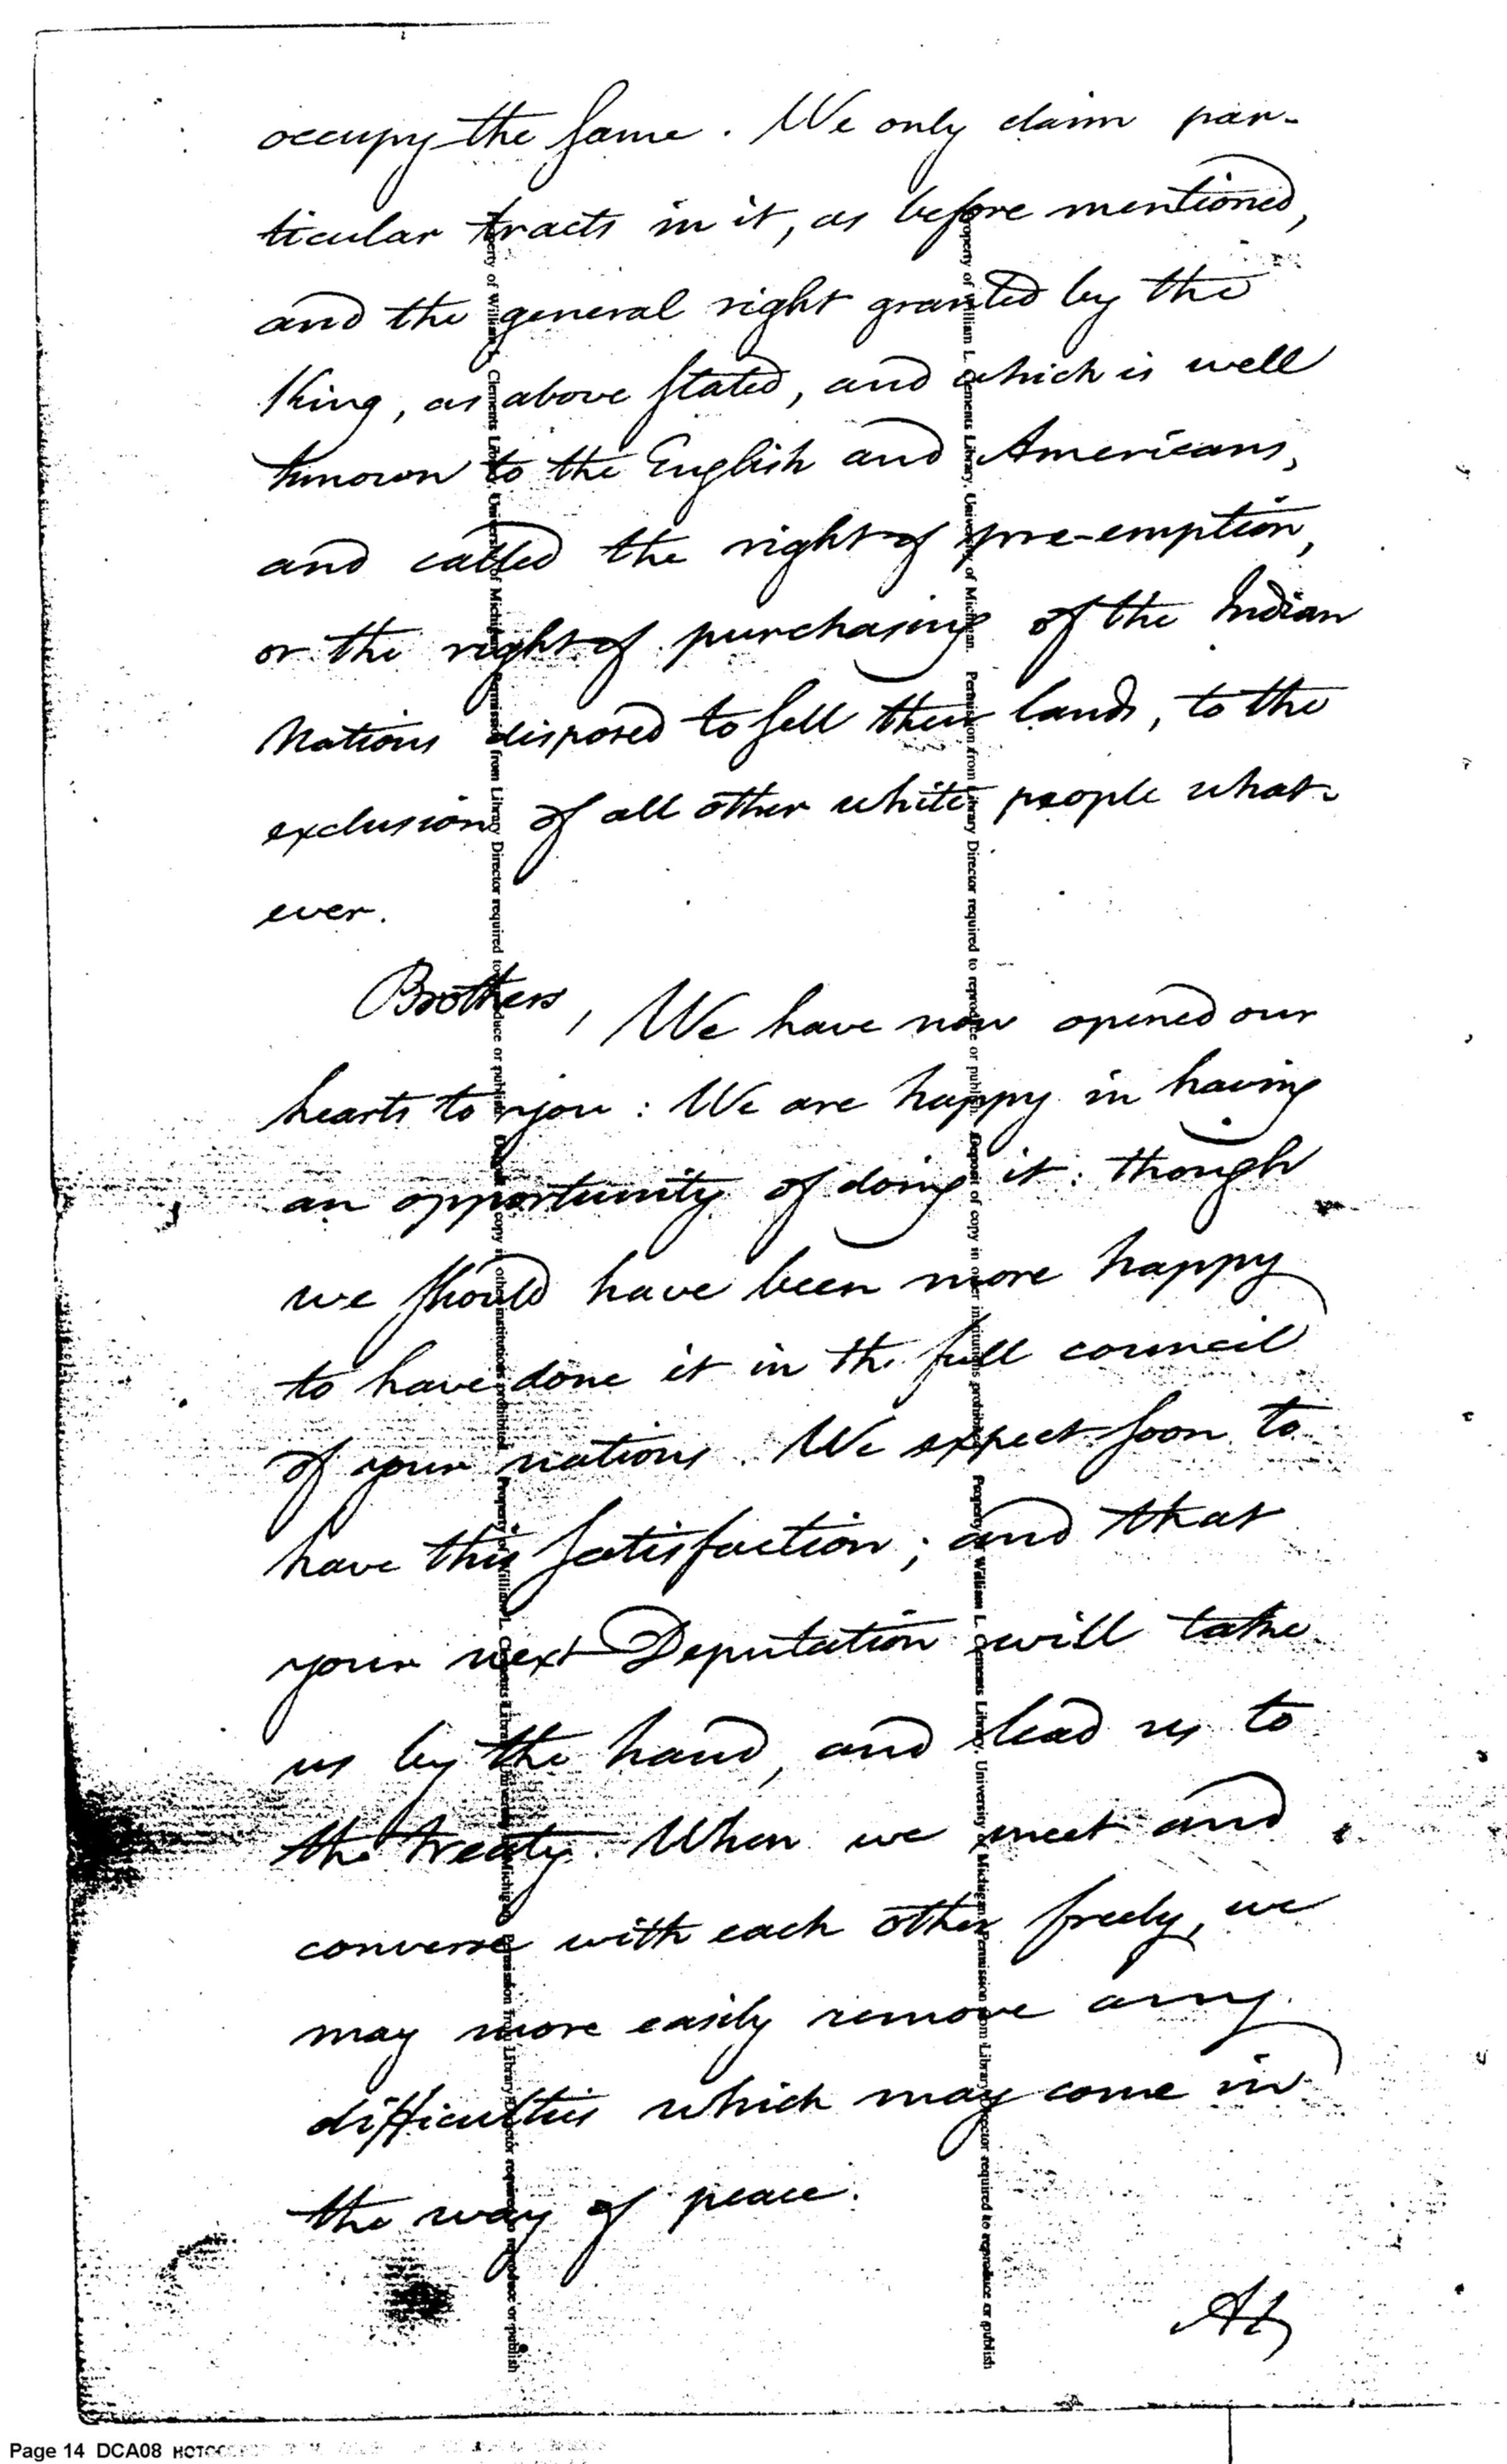 occupy the same. We only claim par-
ticular tracts in it, as before mentioned,
and the general right granted by the
King, as above stated, and which is well
known to the English and Americans,
and called the right of pre-emption,
or the right of purchasing of the Indian
Nations disposed to sell their lands, to the
exclusion of all other white people what-
ever.
Brothers, We have now opened our
hearts to you: We are happy in having
an opportunity of doing it: though
we should have been more happy
to have done it in the full council
of your nations. We expect soon to
have this satisfaction; and that
your next Deputation will take
us by the hand, and lead us to
the treaty. When we meet and
converse with each other freely, we
may more easily remove any
difficulties which may come in
the way of peace.
At
Property of William L. Clements Library, University of Michigan. Permission from Library Director required to reproduce or publish. Deposit of copy in other institutions prohibited. Property of William L. Clements Library, University of Michigan. Permission from Library Director required to reproduce or publish
Property of William L. Clements Library, University of Michigan. Permission from Library Director required to reproduce or publish. Deposit of copy in other institutions prohibited. Property of William L. Clements Library, University of Michigan. Permission from Library Director required to reproduce or publish
Page 14 DCA08